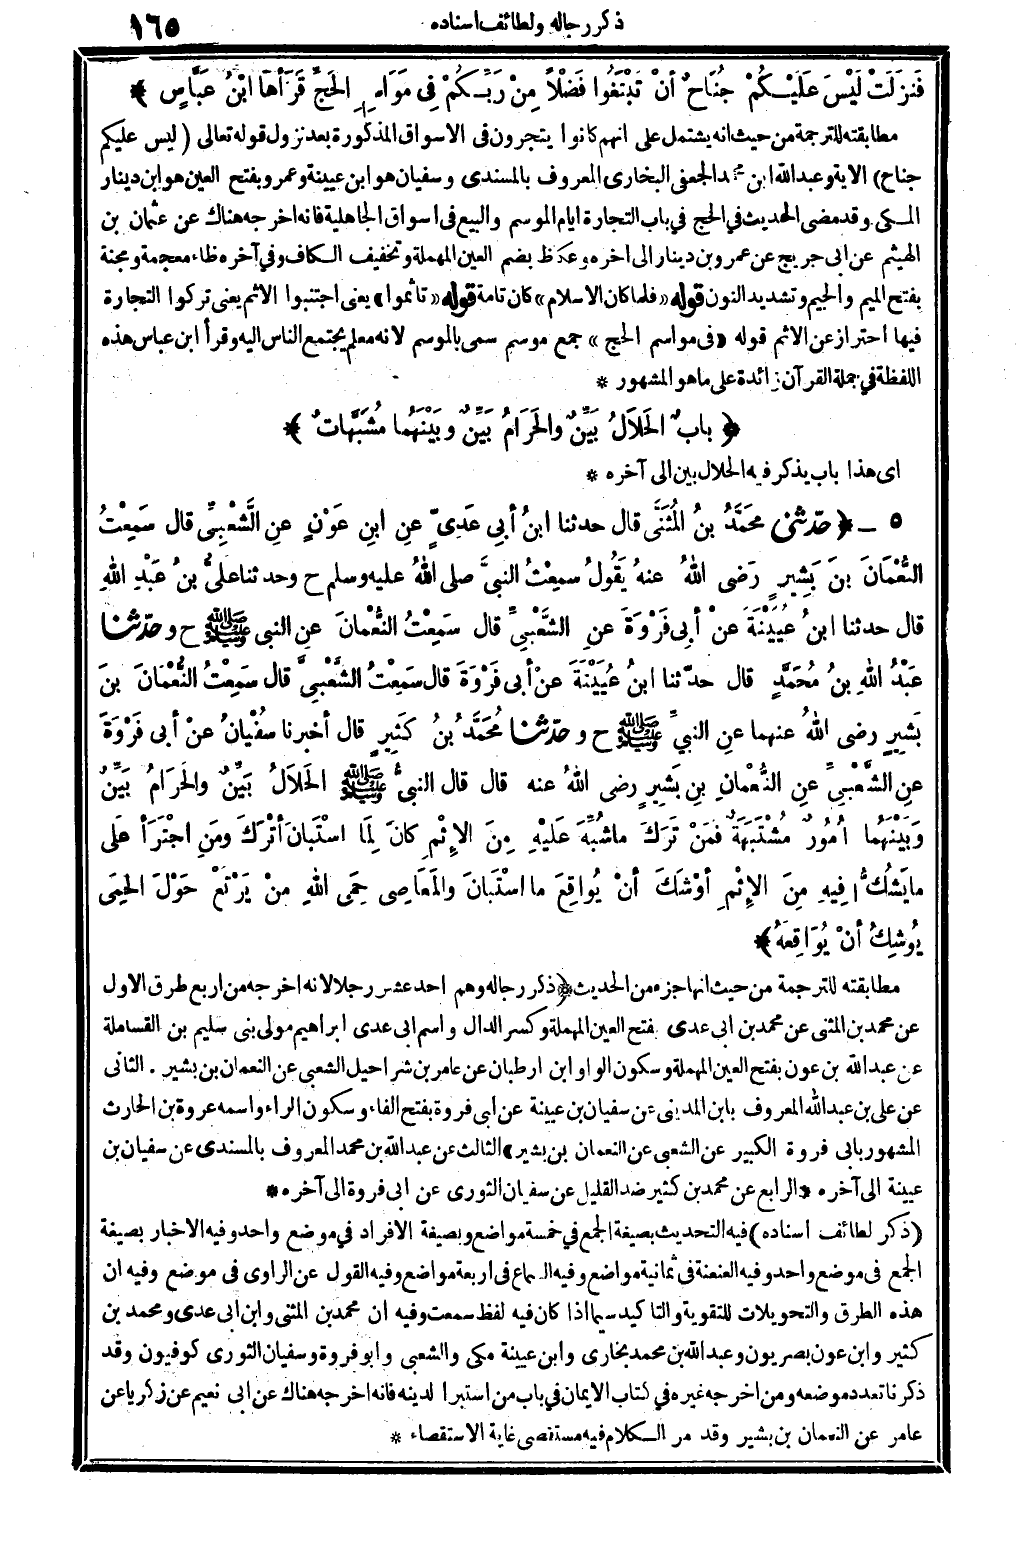 ذكر رجاله ولطائف اسناده
١٦٥
فَنَزَلَتْ لَيْسَ عَلَيْكُمْ جُنَاحٌ أنْ تَبْتَغُوا فَضْلاً مِنْ رَبِّكُمْ فِي مَوَاسِمِ الحَجِّ قَرَأهَا ابْنُ عَبَّاسٍ ﴾
مطابقته للترجمة من حيث انه يشتمل على انهم كانوا يتجرون فى الاسواق المذكورة بعد نزول قوله تعالى (ليس عليكم
جناح) الاية وعبد الله ابن محمد الجعفى البخارى المعروف بالمسندى وسفيان هو ابن عيينة وعمرو بفتح العين هو ابن دينار
المكى وقد مضى الحديث في الحج في باب التجارة ايام الموسم والبيع فى اسواق الجاهلية فانه اخرجه هناك عن عثمان بن
الهيثم عن ابى جريج عن عمرو بن دينار الى اخره وعكاظ بضم العين المهملة وتخفيف الكاف وفي آخره ظاء معجمة ومجنة
بفتح الميم والجيم وتشديد النون قوله «فلما كان الاسلام» كان تامة قوله «تأثموا» يعنى اجتنبوا الاثم يعنى تركوا التجارة
فيها احتراز عن الاثم قوله «فى مواسم الحج» جمع موسم سمى بالموسم لانه معلم يجتمع الناس اليه وقرأ ابن عباس هذه
اللفظة في جملة القرآن زائدة على ما هو المشهور *
﴿ بابٌ الحَلالُ بَيِّنٌ والحَرَامُ بَيِّنٌ وبَيْنَهُما مُشَبَّهاتٌ ﴾
اى هذا باب يذكر فيه الحلال بين الى آخره *
٥ ـ ﴿ حدّثنى مُحَمَّدُ بنُ المُثَنَّى قال حدثنا ابنُ أبِي عَدِيٍّ عنِ ابنِ عَوْنٍ عنِ الشَّعْبِيِّ قال سَمِعْتُ
النُّعْمَانَ بنَ بَشِيرٍ رَضى اللهُ عنهُ يَقُولُ سمِعْتُ النبيَّ صلى اللهُ عليه وسلم ح وحدثنا علىُّ بنُ عَبْدِ اللهِ
قال حدثنا ابنُ عُيَيْنَةَ عنْ أبى فَرْوَةَ عنِ الشَّعْبىِّ قال سَمِعْتُ النُّعْمانَ عنِ النبى ﷺ ح وحدّثنا
عَبْدُ اللهِ بنُ مُحَمَّدٍ قال حدّثنا ابنُ عُيَيْنَةَ عنْ أبى فَرْوَةَ قال سَمِعْتُ الشَّعْبىَّ قال سَمِعْتُ النُّعْمَانَ بنَ
بَشِيرٍ رضى اللهُ عنهما عنِ النبيِّ ﷺ ح وحدّثنا مُحَمَّدُ بنُ كَثِيرٍ قال أخبرنا سفْيانُ عنْ أبى فَرْوَةَ
عنِ الشَّعْبىِّ عنِ النُّعْمانِ بنِ بَشِيرٍ رضى اللهُ عنه قال قال النبىُّ ﷺ الحَلالُ بَيِّنٌ والحَرامُ بَيِّنٌ
وبَيْنَهُما أُمُورٌ مُشْتَبَهَةٌ فمَنْ تَرَكَ ماشُبِّهَ عَلَيْهِ مِنَ الإثْمِ كانَ لِمَا اسْتَبانَ أتْرَكَ ومَنِ اجْتَرَأ عَلَى
مايَشُكُّ فِيهِ مِنَ الإثْمِ أوْشَكَ أنْ يُواقِعَ ما اسْتَبانَ والمَعَاصِى حِمَى اللهِ مِنْ يَرْتَعْ حَوْلَ الحِمَى
يُوشِكُ أنْ يُوَاقِعَهُ ﴾
مطابقته للترجمة من حيث انها جزء من الحديث ﴿ذكر رجاله﴾ وهم احد عشر رجلا لانه اخرجه من اربع طرق الاول
عن محمد بن المثنى عن محمد بن ابى عدى بفتح العين المهملة وكسر الدال واسم ابى عدى ابراهيم مولى بنى سليم بن القساملة
عن عبد الله بن عون بفتح العين المهملة وسكون الواو ابن ارطبان عن عامر بن شراحيل الشعبى عن النعمان بن بشير . الثانى
عن على بن عبد الله المعروف بابن المدينى عن سفيان بن عيينة عن أبى فروة بفتح الفاء وسكون الراء واسمه عروة بن الحارث
المشهور بابى فروة الكبير عن الشعبى عن النعمان بن بشير * الثالث عن عبد الله بن محمد المعروف بالمسندى عن سفيان بن
عيينة الى آخره * الرابع عن محمد بن كثير ضد القليل عن سفيان الثورى عن ابى فروة الى آخره *
(ذكر لطائف اسناده) فيه التحديث بصيغة الجمع في خمسة مواضع وبصيغة الافراد في موضع واحد وفيه الاخبار بصيغة
الجمع فى موضع واحد وفيه العنعنة فى ثمانية مواضع وفيه السماع فى اربعة مواضع وفيه القول عن الراوى فى موضع وفيه ان
هذه الطرق والتحويلات للتقوية والتاكيد سيما اذا كان فيه لفظ سمعت وفيه ان محمد بن المثنى وابن ابى عدى ومحمد بن
كثير وابن عون بصريون وعبد الله بن محمد بخارى وابن عيينة مكى والشعبى وابو فروة وسفيان الثورى كوفيون وقد
ذكرنا تعدد موضعه ومن اخرجه غيره في كتاب الايمان في باب من استبرا لدينه فانه اخرجه هناك عن ابى نعيم عن زكريا عن
عامر عن النعمان بن بشير وقد مر الكلام فيه مستقصى غاية الاستقصاء *